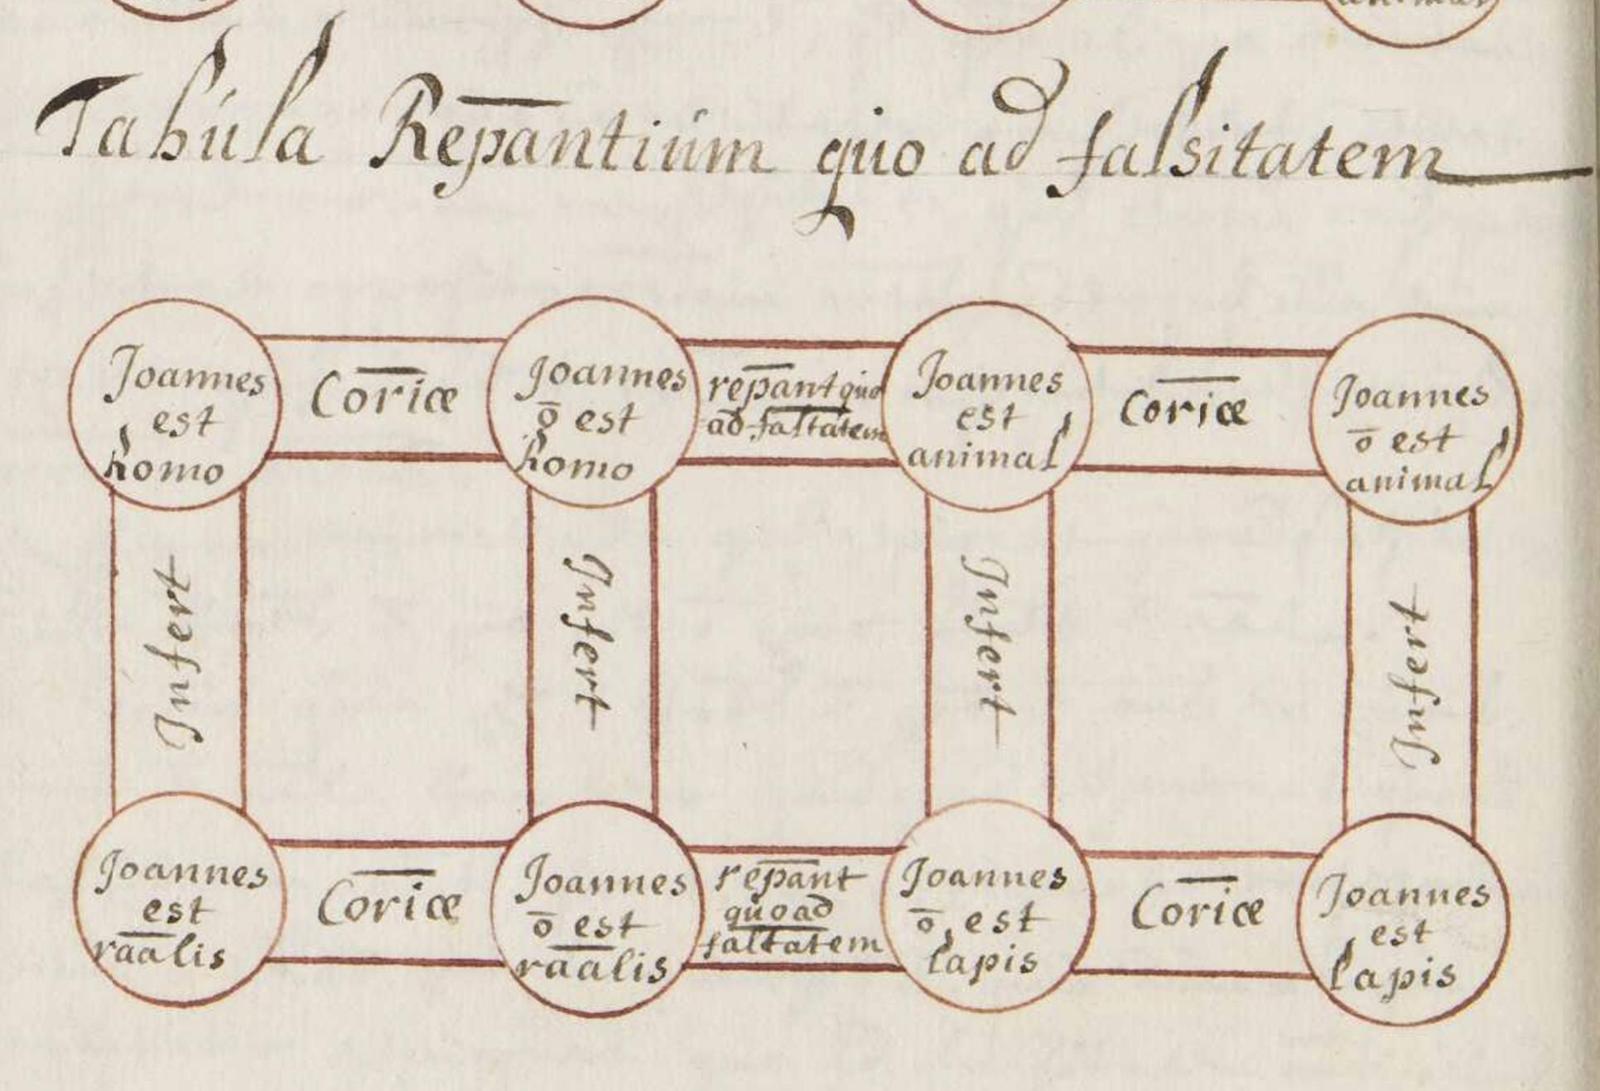 animal
Tabúla Rep̄antiúm qúo ad falsitatem
Joannes
est
homo
Cor̄iæ
Joannes
ō est
homo
rep̄ant qúo
ad fal̄tatem
Joannes
est
animal
Cor̄iæ
Joannes
ō est
animal
Infert
Infert
Infert
Infert
Joannes
est
raālis
Cor̄iæ
Joannes
ō est
raālis
rep̄ant
qúo ad
fal̄tatem
Joannes
ō est
lapis
Cor̄iæ
Joannes
est
lapis